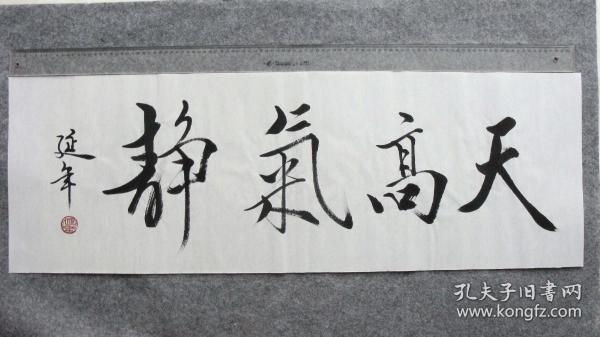 天高氣静
延年
孔夫子旧書网
www.kongfz.com